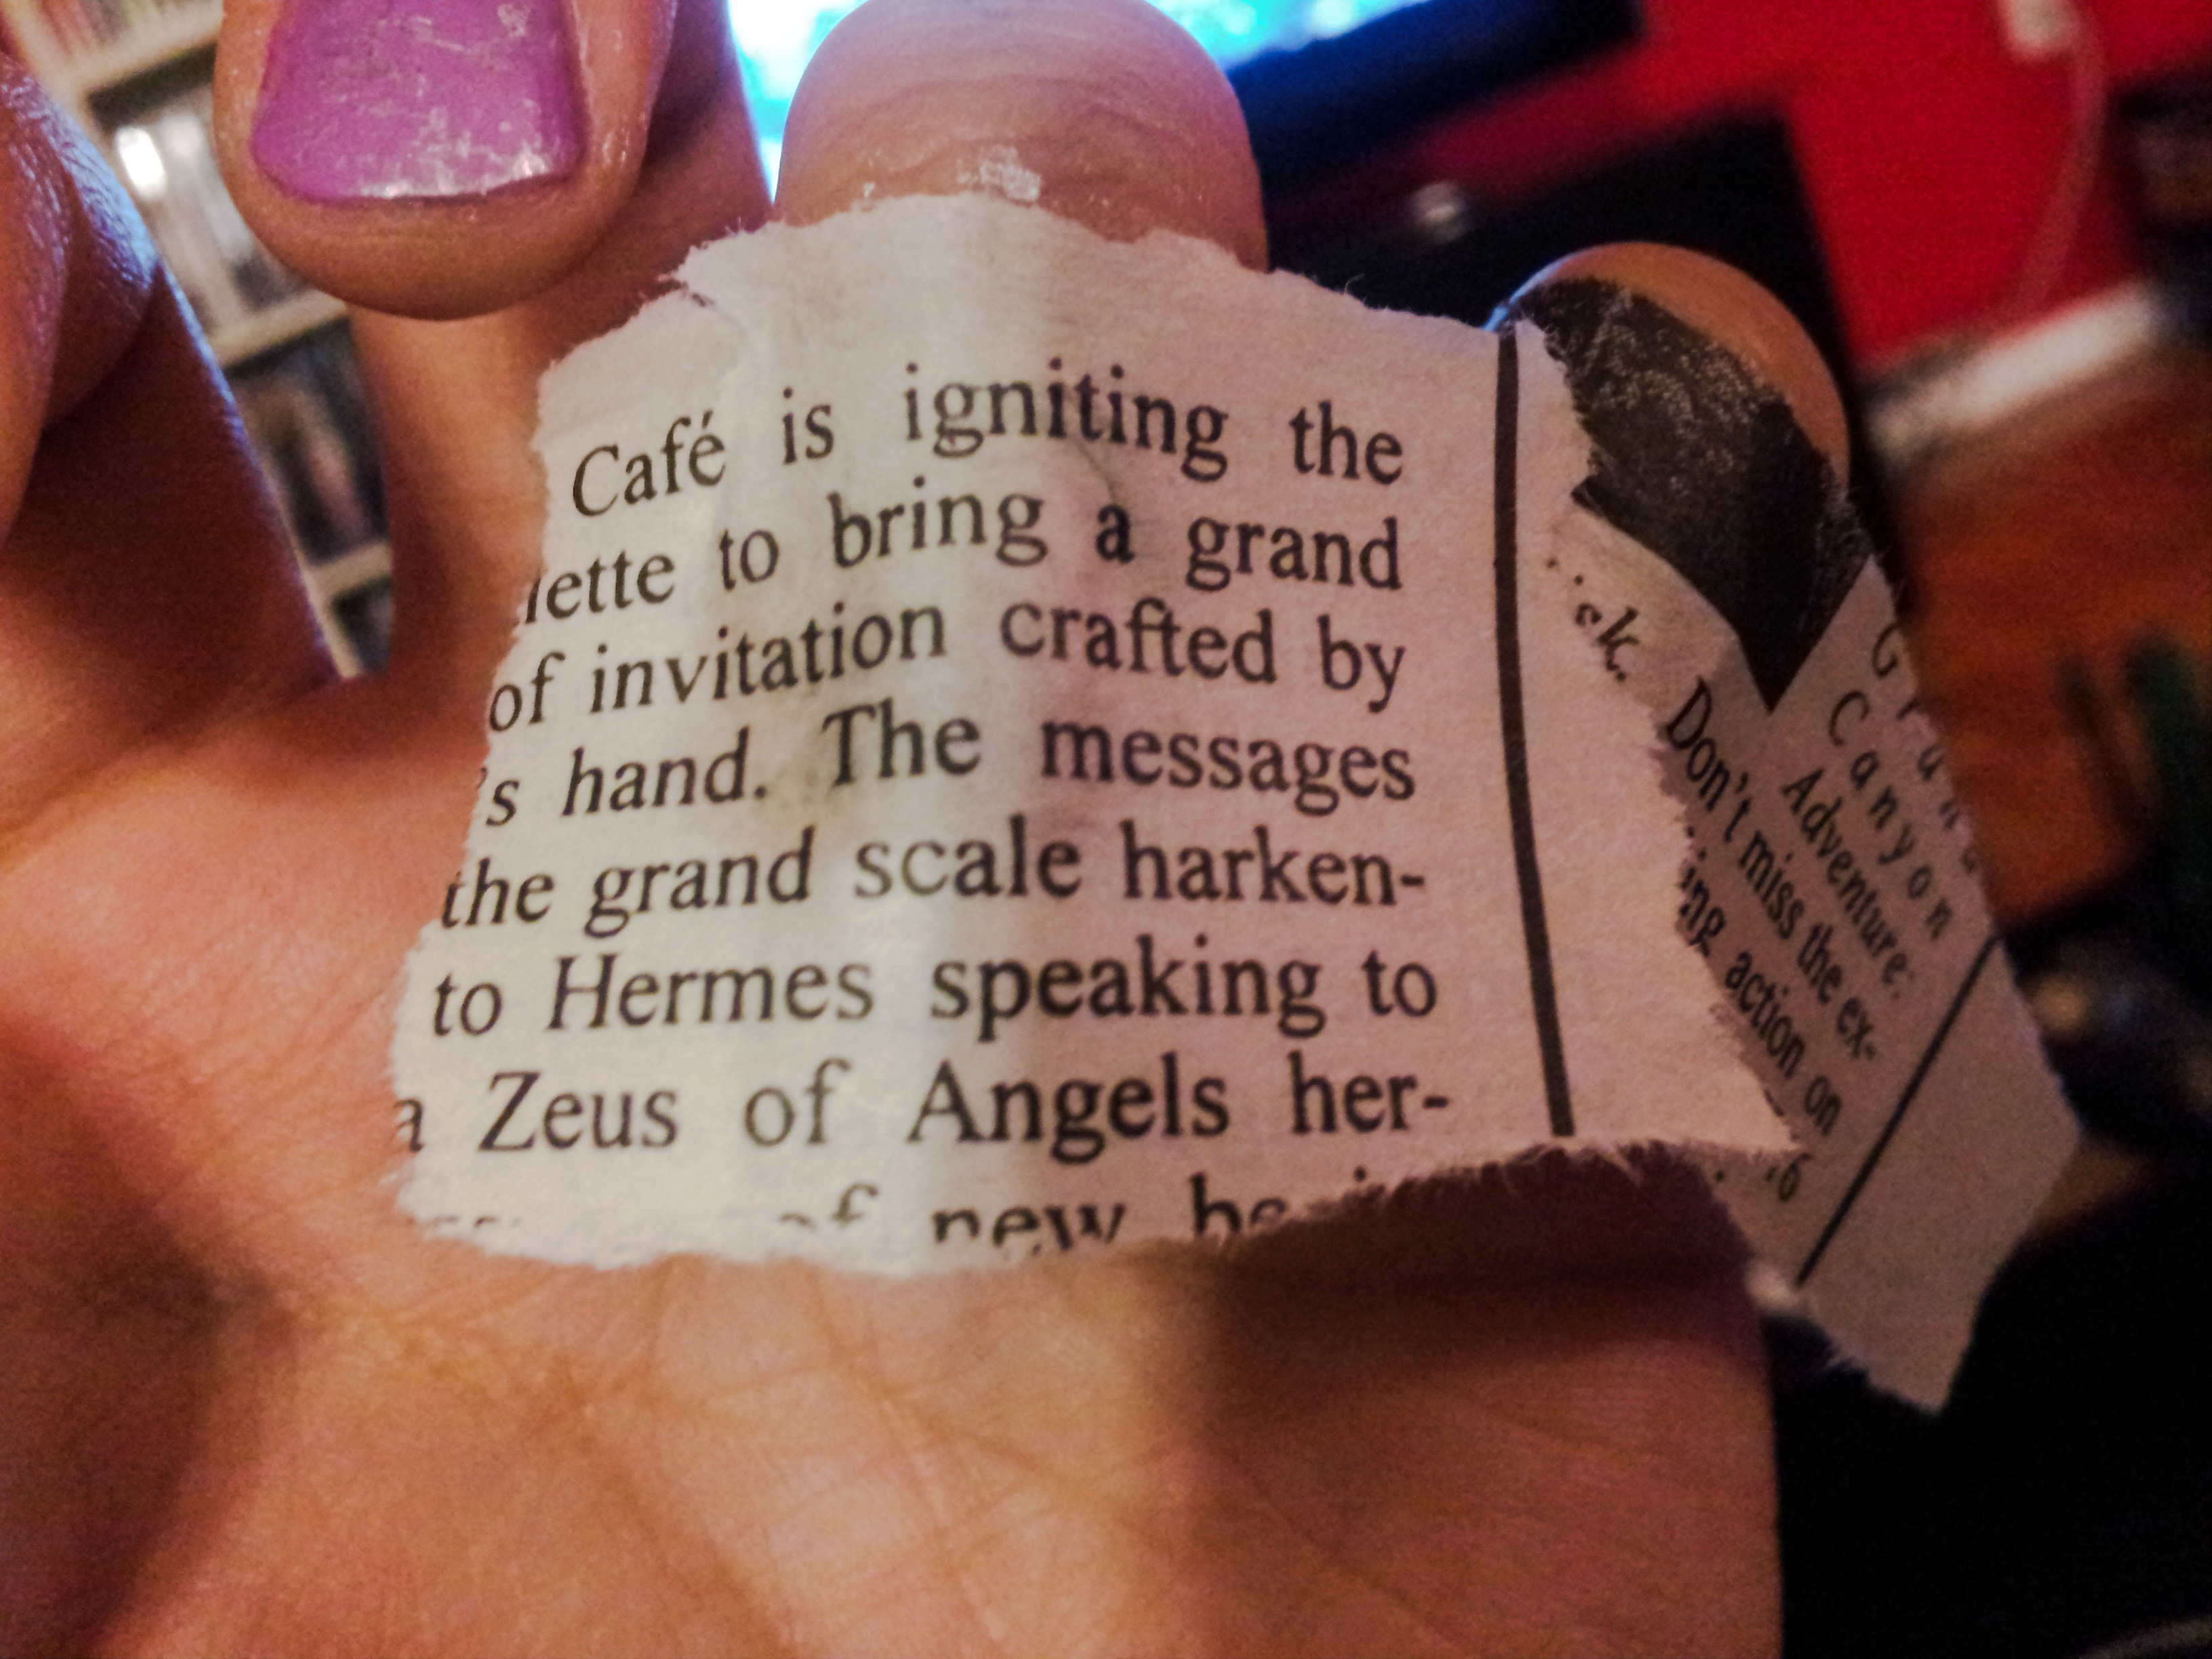 Café is igniting the
lette to bring a grand
of invitation crafted by
's hand. The messages
the grand scale harken-
to Hermes speaking to
a Zeus of Angels her-
of new
Canyon
Adventure:
Don't miss the ex-
ing action on